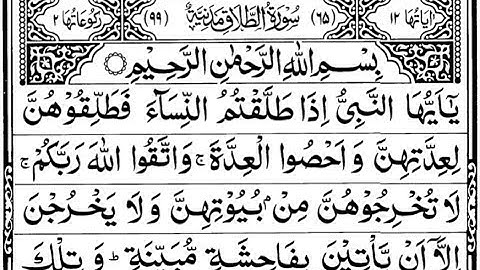 اٰيَاتُهَا ١٢ (٦٥) سُوْرَةُ الطَّلَاقِ مَدَنِيَّةٌ (٩٩) رُكُوْعَاتُهَا ٢
بِسْمِ اللهِ الرَّحْمٰنِ الرَّحِيْمِ
يٰۤاَيُّهَا النَّبِىُّ اِذَا طَلَّقْتُمُ النِّسَآءَ فَطَلِّقُوْهُنَّ
لِعِدَّتِهِنَّ وَ اَحْصُوا الْعِدَّةَ ۚ وَاتَّقُوا اللهَ رَبَّكُمْ ۚ
لَا تُخْرِجُوْهُنَّ مِنْۢ بُيُوْتِهِنَّ وَ لَا يَخْرُجْنَ
اِلَّاۤ اَنْ يَّاْتِيْنَ بِفَاحِشَةٍ مُّبَيِّنَةٍ ؕ وَ تِلْكَ